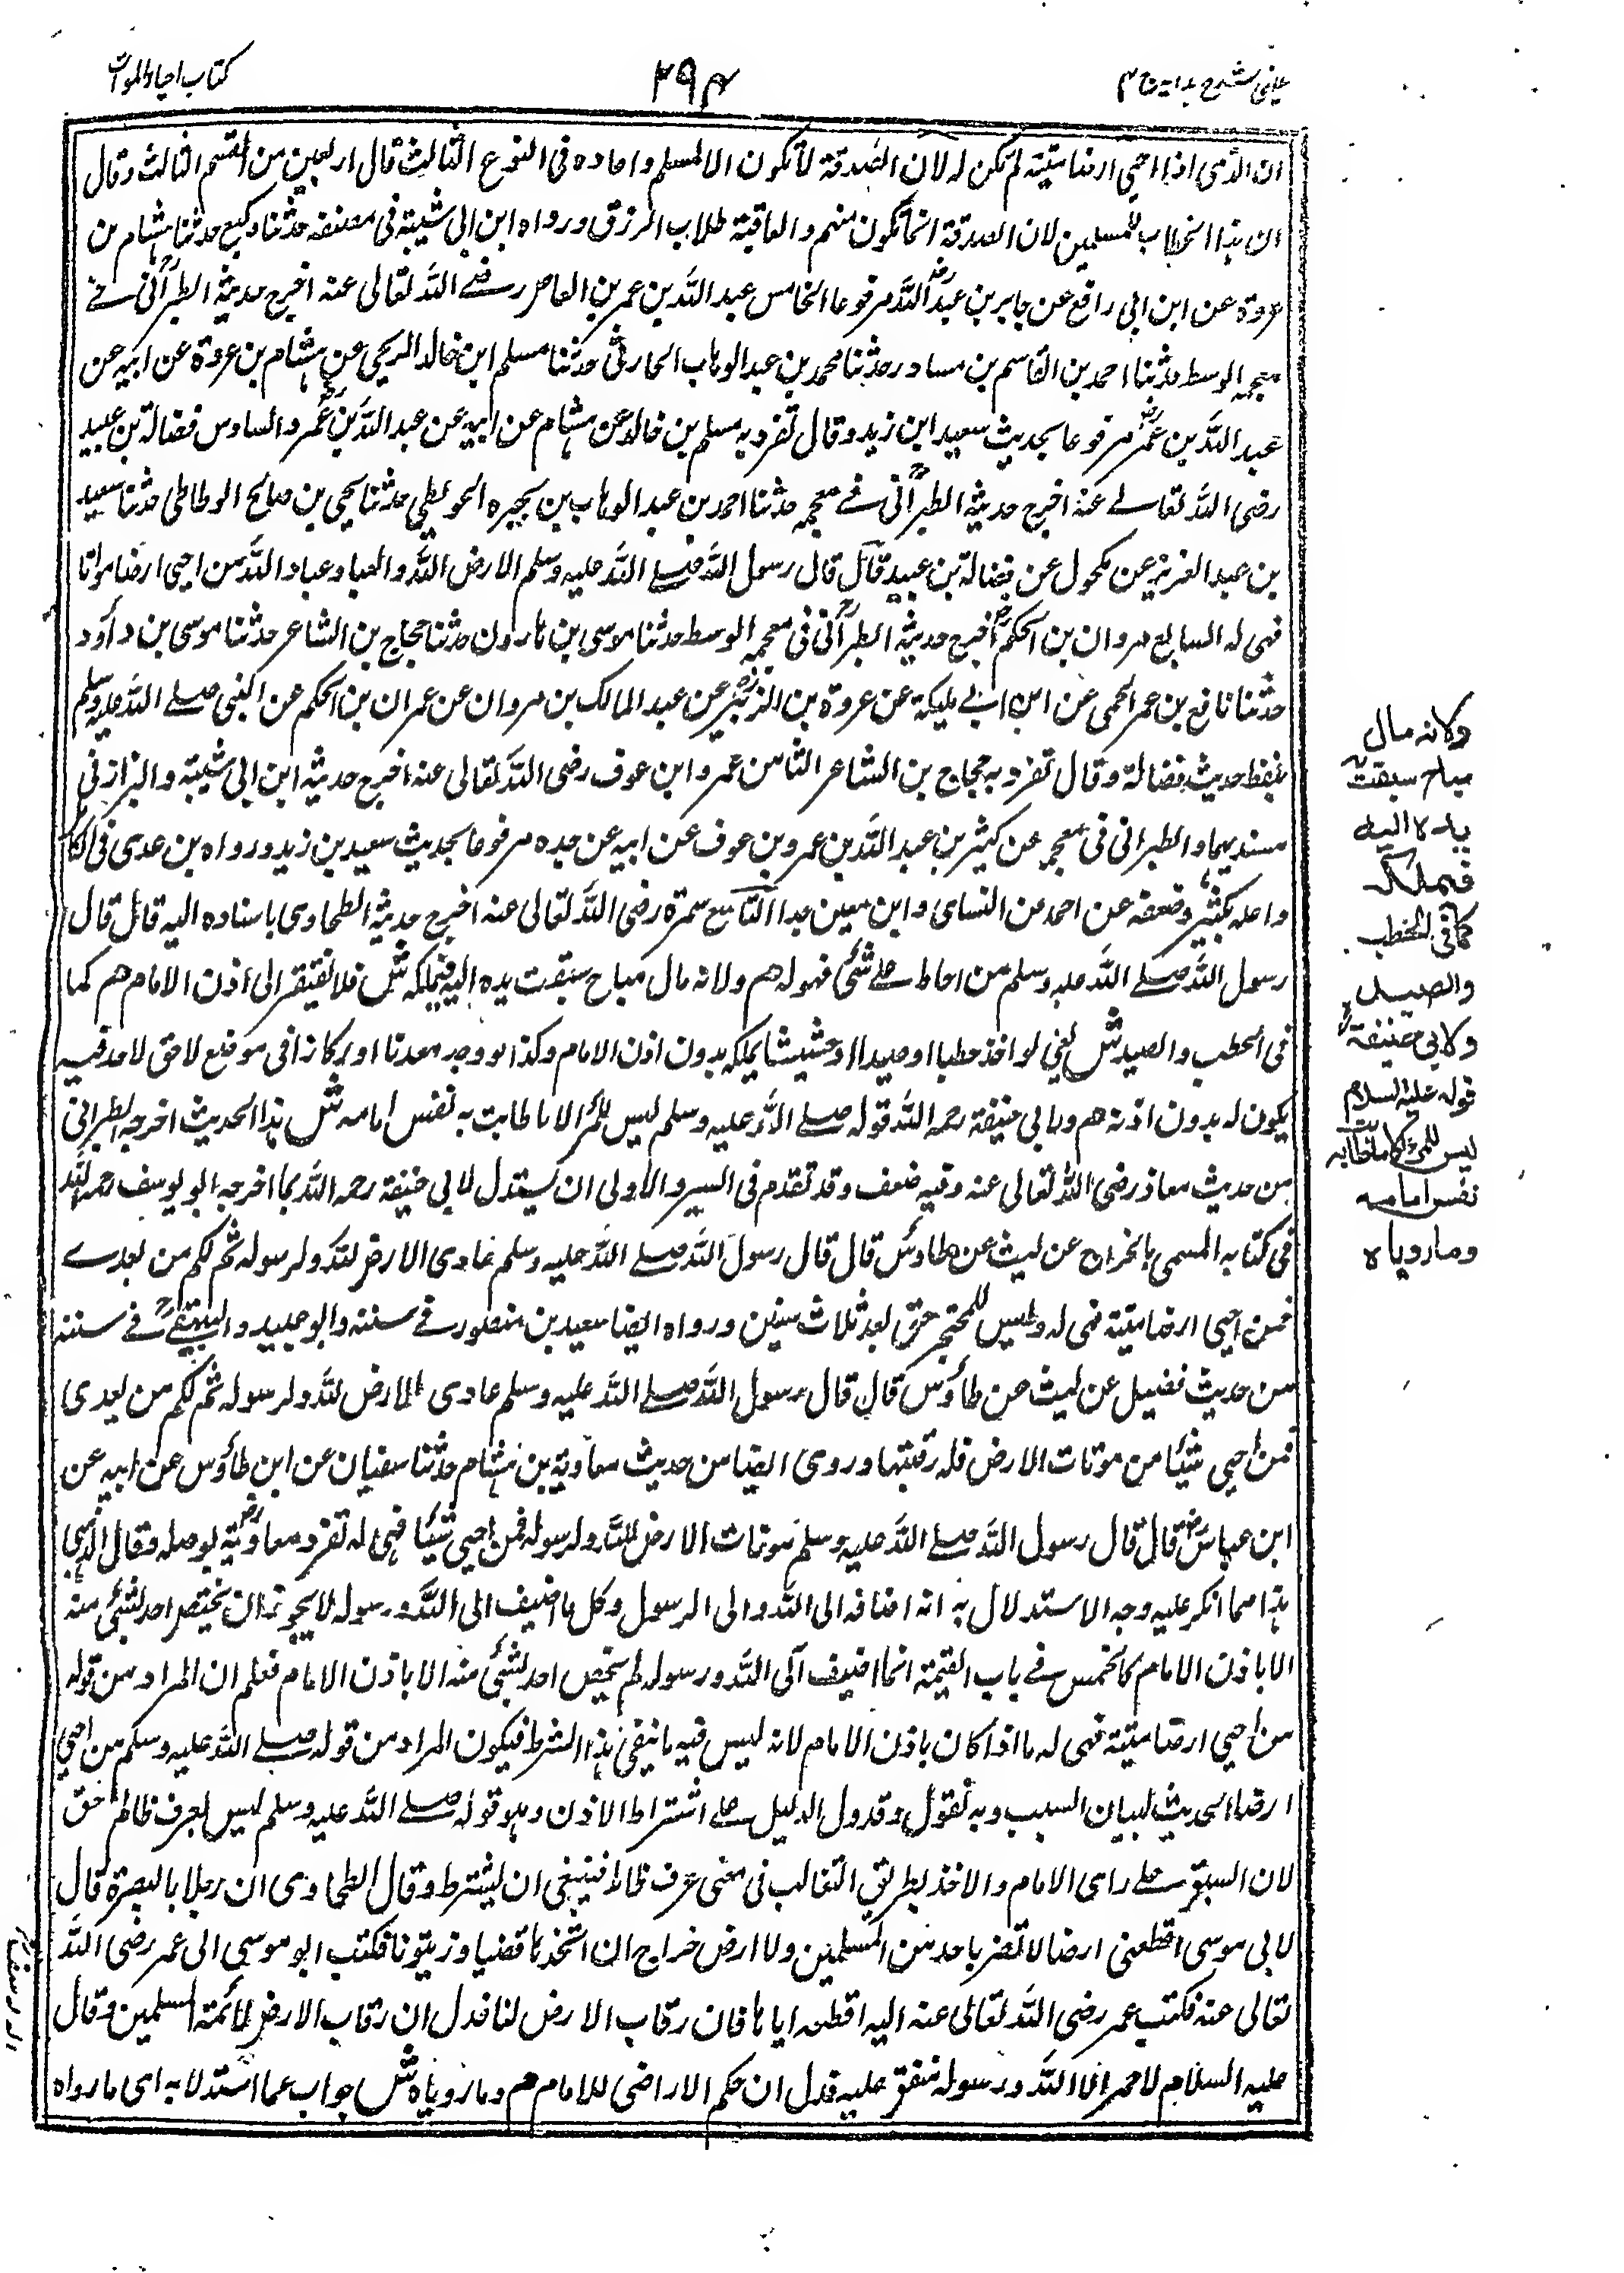 عینی شرح ہدایہ ج ۴
۲۹۴
کتاب احیاء الموات
ان الذمی اذا احیی ارضا میتة لم تکن له لان الصدقة لا تکون الا لمسلم واعاده فی النوع الثالث قال اربعین من القسم الثالث وقال
ان هذا الخطاب للمسلمین لان الصدقة انما تکون منهم والعاقبة طلاب الرزق ورواه ابن ابی شیبة فی مصنفه حدثنا وکیع حدثنا هشام من
عروة عن ابن ابی رافع عن جابر بن عبد الله مرفوعا الخامس عبد الله بن عمر بن العاص رضی الله تعالی عنه اخرج حدیثه الطبرانی فی
معجمه الوسط حدثنا احمد بن القاسم بن مساور حدثنا محمد بن عبد الوهاب الحارثی حدثنا مسلم ابن خالد الزنجی عن هشام بن عروة عن ابیه عن
عبد الله بن عمر مرفوعا بحدیث سعید ابن زید وقال تفرد به مسلم بن خالد عن هشام عن ابیه عن عبد الله بن عمر والسادس فضالة بن عبید
رضی الله تعالے عنه اخرج حدیثه الطبرانی فے معجمه حدثنا احمد بن عبد الوهاب بن بحیره الحوطی حدثنا یحیی بن صالح الوطاطی حدثنا سعید
بن عبد العزیز عن مکحول عن فضالة بن عبید قال قال رسول الله صلے الله علیه وسلم الارض الله والعباد عباد الله من احیی ارضا مواتا
فهی له السابع مروان بن الحکم اخرج حدیثه الطبرانی فی معجمه الوسط حدثنا موسی بن هارون حدثنا حجاج بن الشاعر حدثنا موسی بن داود
حدثنا نافع بن عمر الجمحی عن ابن ابے ملیکة عن عروة بن الزبیر عن عبد المالک بن مروان عن عمران بن الحکم عن النبی صلے الله علیه وسلم
بلفظ حدیث فضالة وقال تفرد به حجاج بن الشاعر الثامن عمرو ابن عوف رضی الله تعالی عنه اخرج حدیثه ابن ابی شیبة والبزار فی
مسندیهما والطبرانی فی معجمه عن کثیر بن عبد الله بن عمرو بن عوف عن ابیه عن جده مرفوعا بحدیث سعید بن زید ورواه بن عدی فی الکا
واعله بکثیر وضعفه عن احمد من النسای وابن معین جدا التاسع سمرة رضی الله تعالی عنه اخرج حدیثه الطحاوی باسناده الیه قال قال
رسول الله صلے الله علیه وسلم من احاط علے شئ فهو له هم ولانه مال مباح سبقت یده الیه فیملکه ش فلا یفتقر الی اذن الامام هم کما
فی الحطب والصید ش یعنی لو اخذ حطبا او صیدا او حشیشا یملکه بدون اذن الامام وکذا لو وجد معدنا او رکازا فی موضع لا حق لاحد فیه
یکون له بدون اذنه هم ولابی حنیفة رحمه الله قوله صلے الله علیه وسلم لیس للمرء الا ما طابت به نفس امامه ش هذا الحدیث اخرجه الطبرانی
من حدیث معاذ رضی الله تعالی عنه وفیه ضعف وقد تقدم فی السیر والاولی ان یستدل لابی حنیفة رحمه الله بما اخرجه ابو یوسف رحمه الله
فی کتابه المسمی بالخراج عن لیث عن طاؤس قال قال رسول الله صلے الله علیه وسلم عادی الارض لله ولرسوله ثم لکم من بعدے
فمن احیی ارضا میتة فهی له ولیس للمحتجر حق بعد ثلاث سنین ورواه ایضا سعید بن منصور فے سننه وابو عبید والبیهقی فے سننه
من حدیث فضیل عن لیث عن طاؤس قال قال رسول الله صلے الله علیه وسلم عادی الارض لله ولرسوله ثم لکم من بعدی
فمن احیی شیئا من موتات الارض فله رقبتها وروی ایضا من حدیث معاویة بن هشام حدثنا سفیان عن ابن طاؤس عن ابیه عن
ابن عباس قال قال رسول الله صلے الله علیه وسلم موتات الارض لله ولرسوله فمن احیی شیئا فهی له تفرد معاویة بوصله وقال الذهبی
هذا مما انکر علیه وجه الاستدلال به انه اضافه الی الله والی الرسول وکل ما اضیف الی الله ورسوله لا یجوز ان یختص احد بشئ منه
الا باذن الامام کالخمس فے باب الغنیمة انما اضیف الی الله ورسوله لم یختص احد بشئ منه الا باذن الامام فعلم ان المراد من قوله
من احیی ارضا میتة فهی له ما اذا کان باذن الامام لانه لیس فیه ما ینفی هذا الشرط فیکون المراد من قوله صلے الله علیه وسلم من احیی
ارضا الحدیث لبیان السبب وبه نقول وقد دل الدلیل علے اشتراط الاذن وهو قوله صلے الله علیه وسلم لیس لعرق ظالم حق
لان السبق علے رای الامام والاخذ بطریق التغالب فی معنی عرق ظالم فینبغی ان یشترط وقال الطحاوی ان رجلا بالبصرة قال
لابی موسی اقطعنی ارضا لا تضر باحد من المسلمین ولا ارض خراج ان اتخذها قضبا وزیتونا فکتب ابو موسی الی عمر رضی الله
تعالی عنه فکتب عمر رضی الله تعالی عنه الیه اقطعه ایاها فان رقاب الارض لنا فدل ان رقاب الارض لائمة المسلمین وقال
علیه السلام لا حمی الا لله ورسوله متفق علیه فدل ان حکم الاراضی للامام هم وما رویاه ش جواب عما استدلا به ای ما رواه
ولانه مال
مباح سبقت
یده الیه
فیملکه
کما فی الحطب
والصید
ولابی حنیفة
قوله علیه السلام
لیس للمرء الا ما طابت به
نفس امامه
وما رویاه